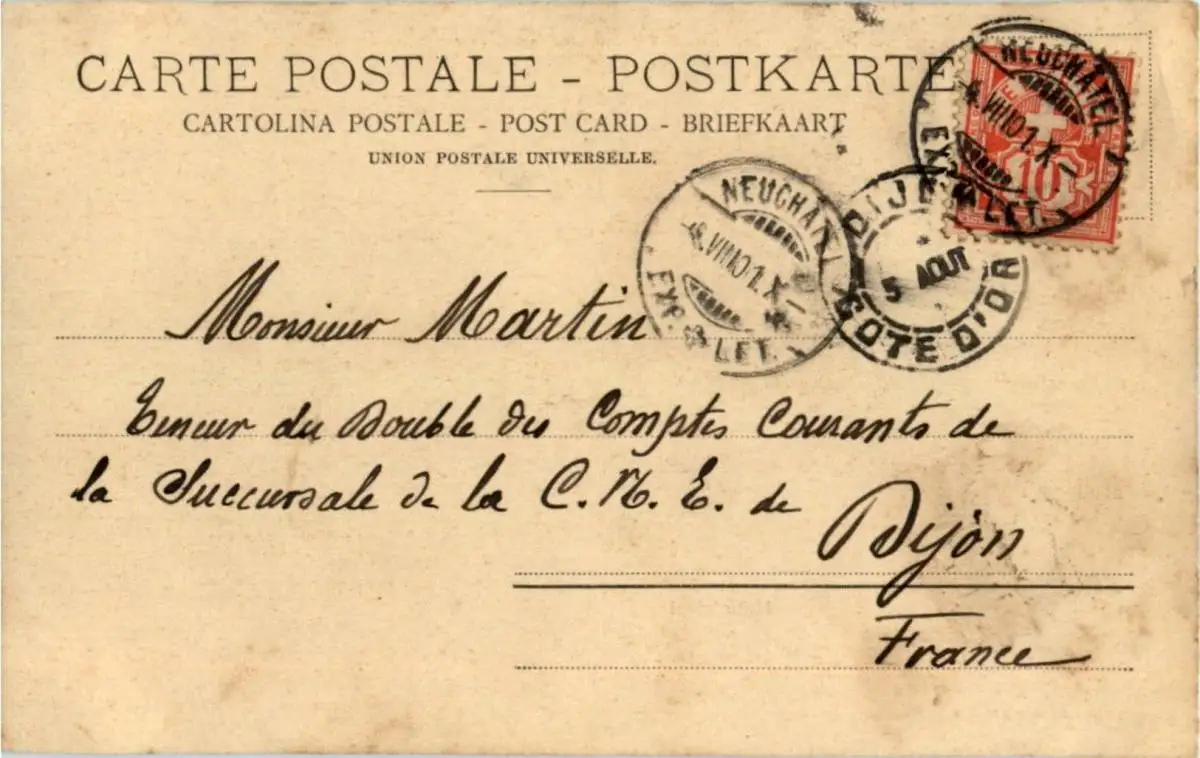 CARTE POSTALE - POSTKARTE
CARTOLINA POSTALE - POST CARD - BRIEFKAART
UNION POSTALE UNIVERSELLE.
NEUCHÂTEL
VIII 01. X
EXP. LET.
10
NEUCHÂTEL
VIII 01. X
EXP. LET.
DIJON
5 AOUT
COTE D'OR
Monsieur Martin
Teneur du Double des Comptes Courants de
la Succursale de la C. N. E. de
Dijon
France